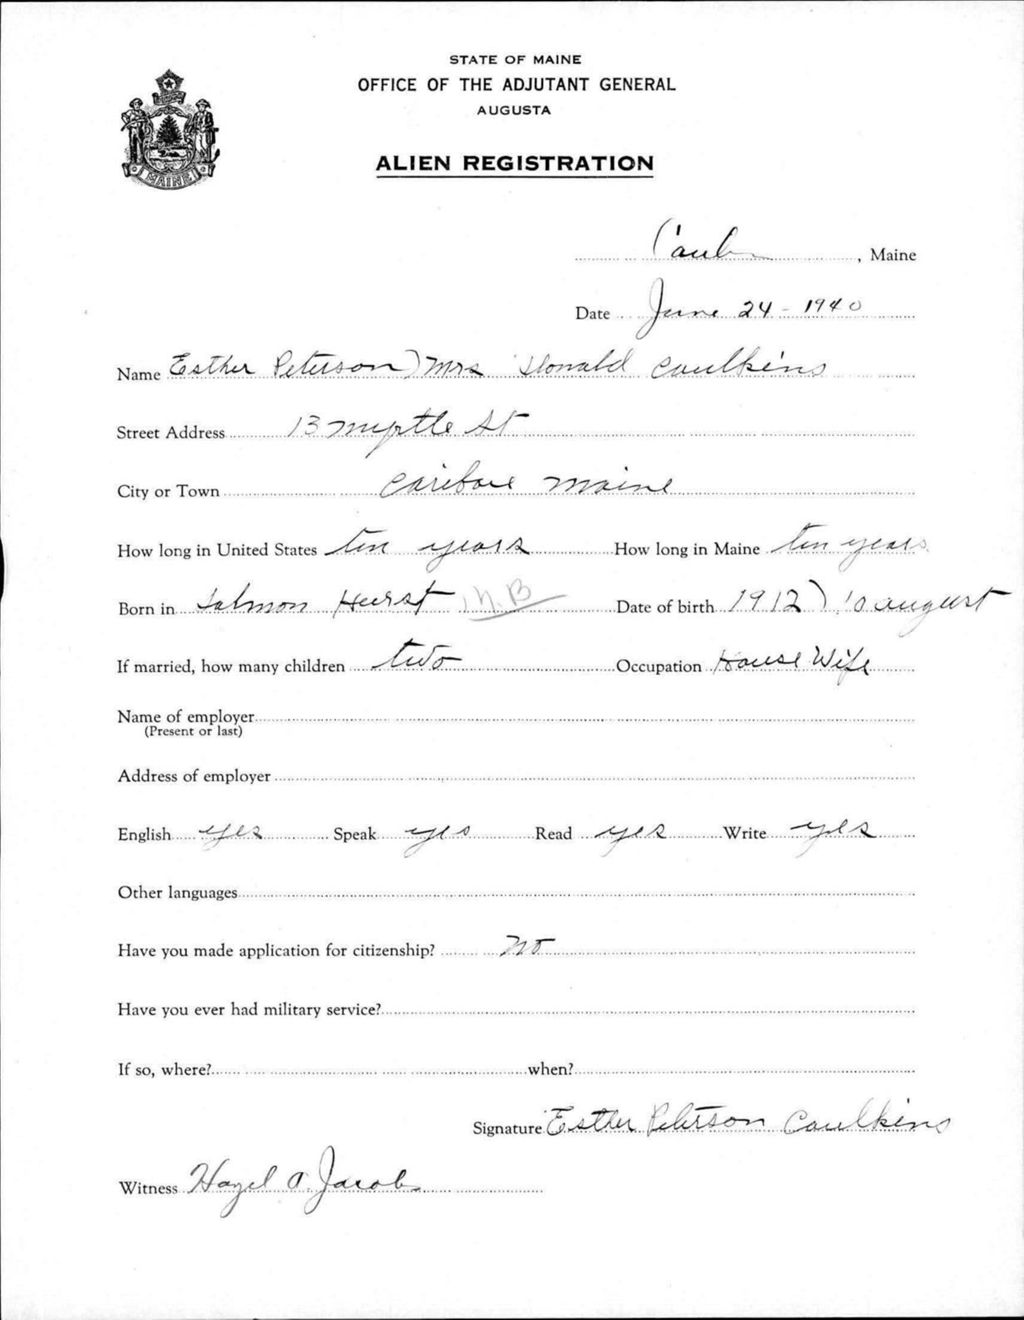 STATE OF MAINE
OFFICE OF THE ADJUTANT GENERAL
AUGUSTA
MAINE
ALIEN REGISTRATION
, Maine
Date June 24 - 1940
Name Esther Peterson) Mrs Donald Caulkins
Street Address 13 Myrtle St
City or Town Caribou Maine
How long in United States ten years How long in Maine ten years
Born in Salmon Hurst N.B Date of birth 1912) 10 august
If married, how many children two Occupation House Wife
Name of employer
(Present or last)
Address of employer
English yes Speak yes Read yes Write yes
Other languages
Have you made application for citizenship? no
Have you ever had military service?
If so, where? when?
Signature Esther Peterson Caulkins
Witness Hazel A. Jacobs